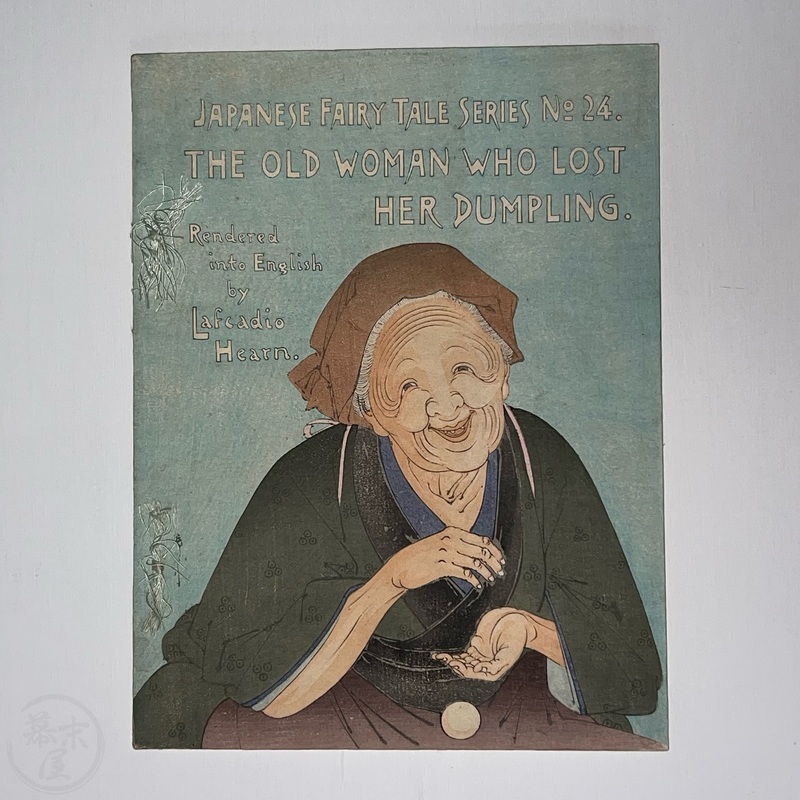 JAPANESE FAIRY TALE SERIES No 24.
THE OLD WOMAN WHO LOST
HER DUMPLING.
Rendered
into English
by
Lafcadio
Hearn.
幕末
屋